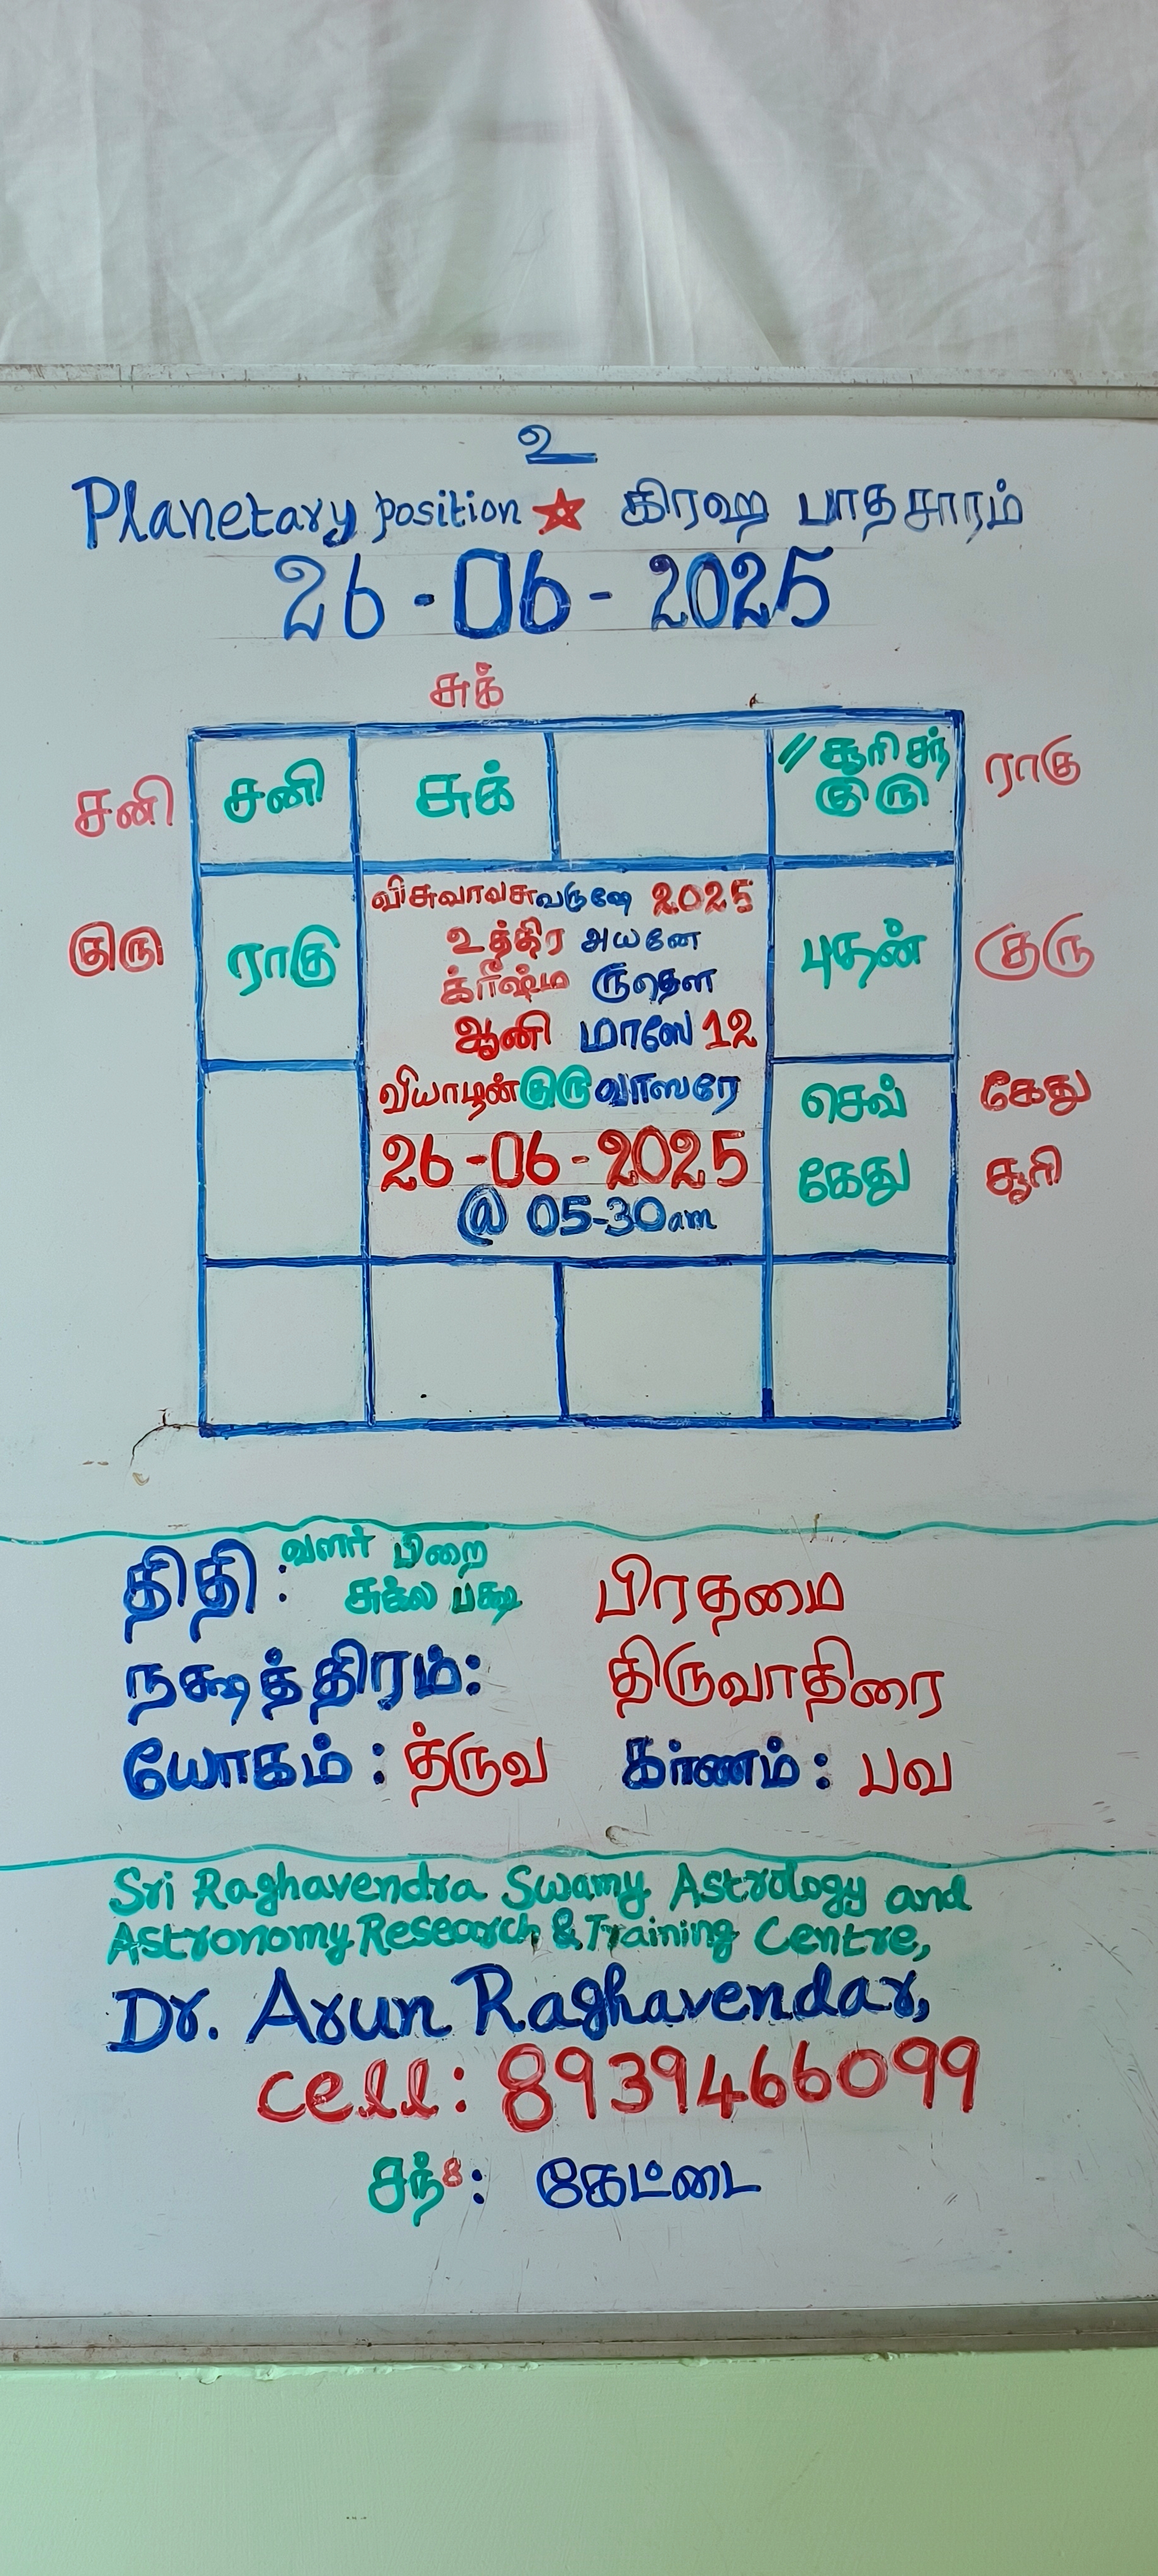 உ
Planetary position ★ கிரஹ பாதசாரம்
26-06-2025
சுக்
சனி சனி சுக் // சூரி சந் ராகு
குரு
குரு ராகு புதன் குரு
விசுவாவசுவருஷே 2025
உத்திர அயனே
க்ரீஷ்ம ருதௌ
ஆனி மாஸே 12
வியாழன் குரு வாஸரே
26-06-2025
@ 05-30am
செவ் கேது
கேது சூரி
திதி: வளர் பிறை பிரதமை
சுக்ல பக்ஷ
நக்ஷத்திரம்: திருவாதிரை
யோகம்: த்ருவ கர்ணம்: பவ
Sri Raghavendra Swamy Astrology and
Astronomy Research & Training Centre,
Dr. Arun Raghavendar,
cell: 8939466099
சந் 8: கேட்டை